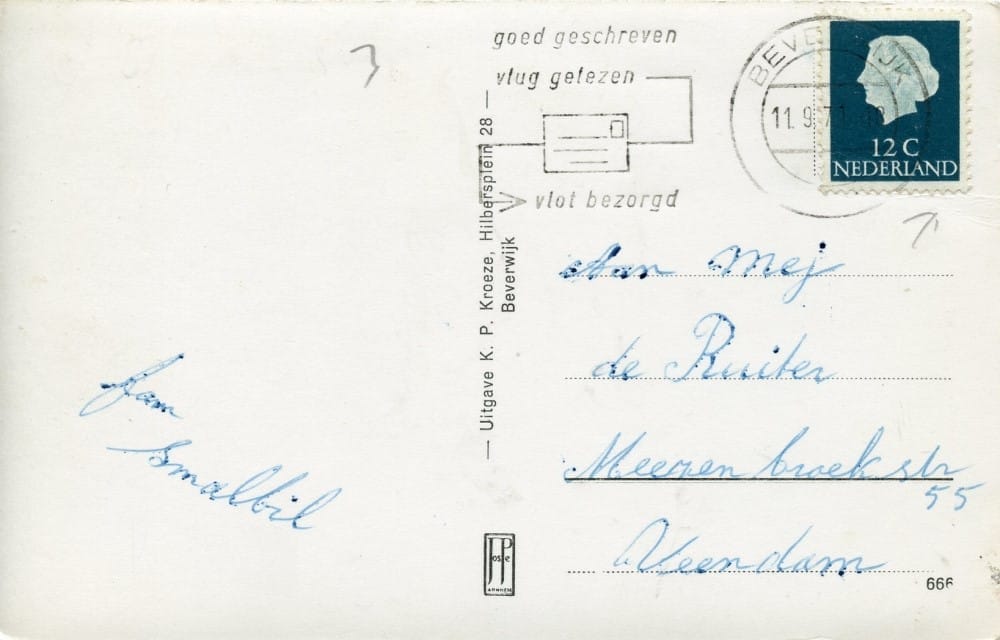 3
goed geschreven
vlug gelezen
vlot bezorgd
BEVERWIJK
11. 9. 7
12 C
NEDERLAND
— Uitgave K. P. Kroeze, Hilbersplein 28 —
Beverwijk
Aan Mej
de Ruiter
Meerenbroekstr
55
Veendam
fam
Smalbil
JosPe
ARNHEM
666